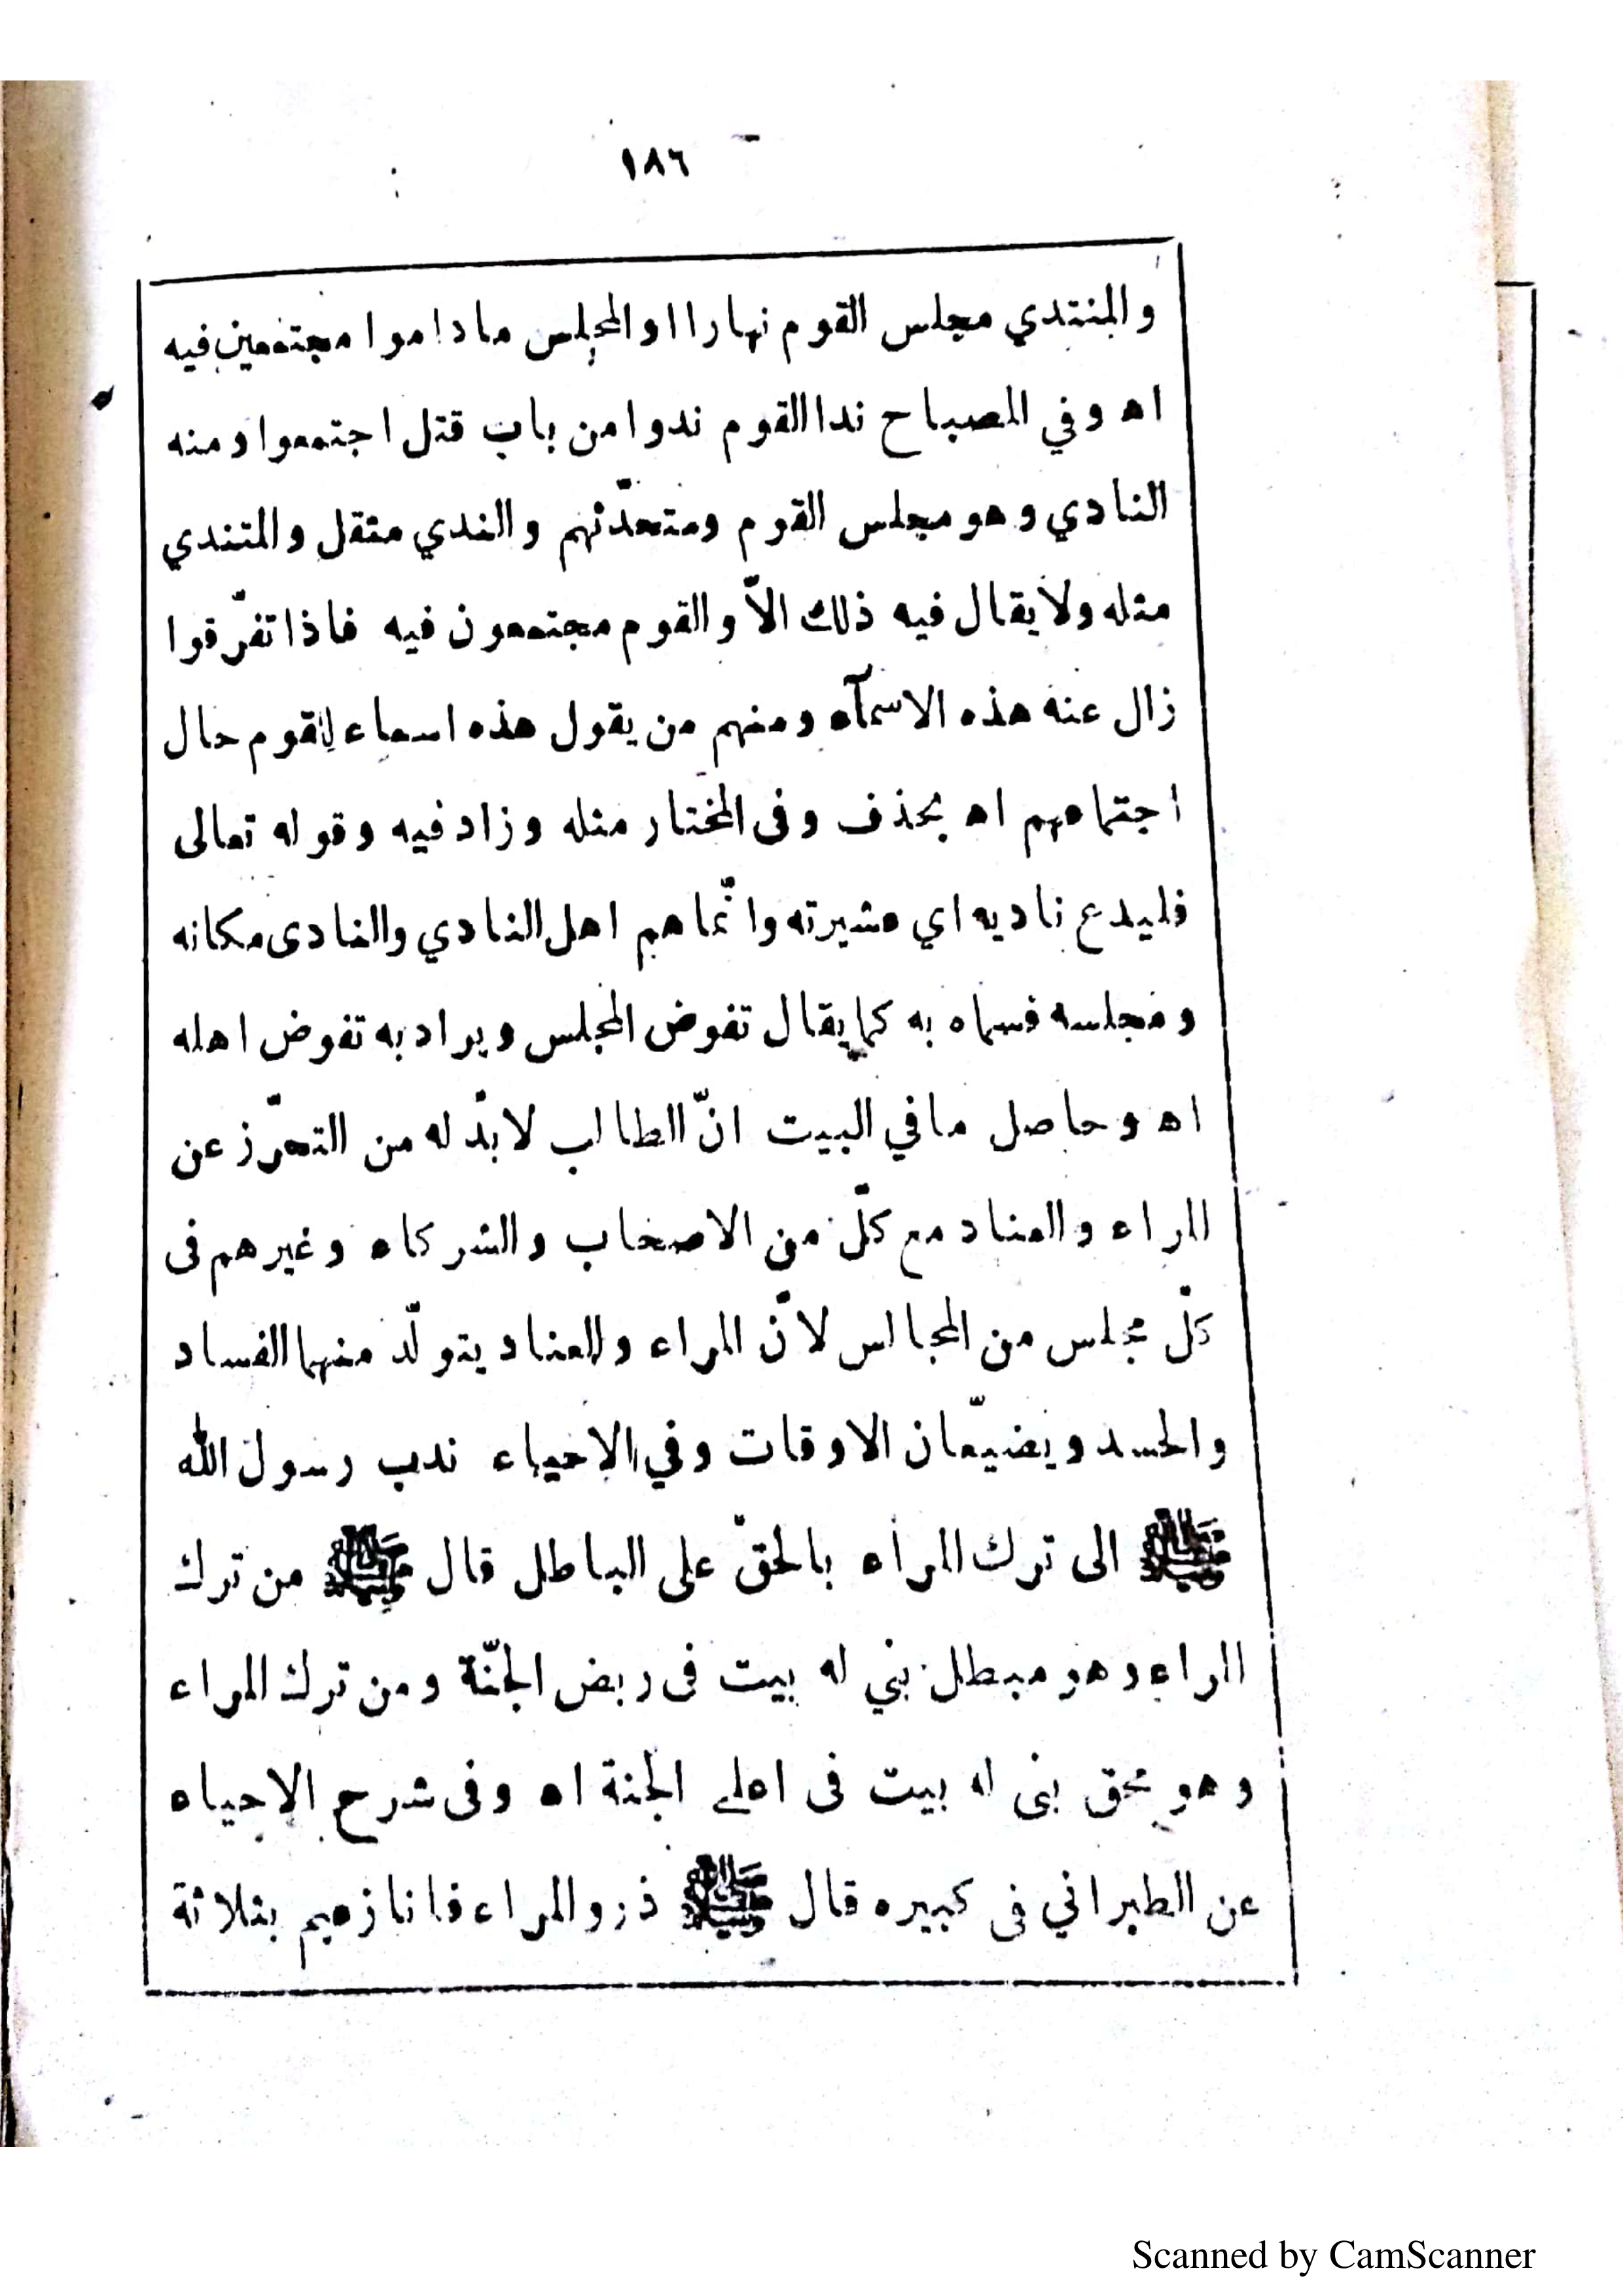 ١٨٦
والمنتدي مجلس القوم نهارا او المجلس ما داموا مجتمعين فيه
اه وفي المصباح ندا القوم ندوا من باب قتل اجتمعوا ومنه
النادي وهو مجلس القوم ومتحدّثهم والندي مثقل والمتندي
مثله ولا يقال فيه ذلك الاّ والقوم مجتمعون فيه فاذا تفرّقوا
زال عنه هذه الاسمآء ومنهم من يقول هذه اسماء للقوم حال
اجتماعهم اه بحذف وفى المختار مثله وزاد فيه وقوله تعالى
فليدع ناديه اي عشيرته وانّما هم اهل النادي والنادى مكانه
ومجلسه فسماه به كما يقال تفوض المجلس ويراد به تفوض اهله
اه وحاصل ما في البيت انّ الطالب لا بدّ له من التحرّز عن
المراء والعناد مع كلّ من الاصحاب والشركاء وغيرهم فى
كلّ مجلس من المجالس لانّ المراء والعناد يتولّد منهما الفساد
والحسد ويضيّعان الاوقات وفي الاحياء ندب رسول الله
ﷺ الى ترك المراء بالحقّ على الباطل قال ﷺ من ترك
المراء وهو مبطل بني له بيت فى ربض الجنّة ومن ترك المراء
وهو محق بنى له بيت فى اعلى الجنة اه وفى شرح الاحياء
عن الطبراني فى كبيره قال ﷺ ذروا المراء فانا زعيم بثلاثة
Scanned by CamScanner